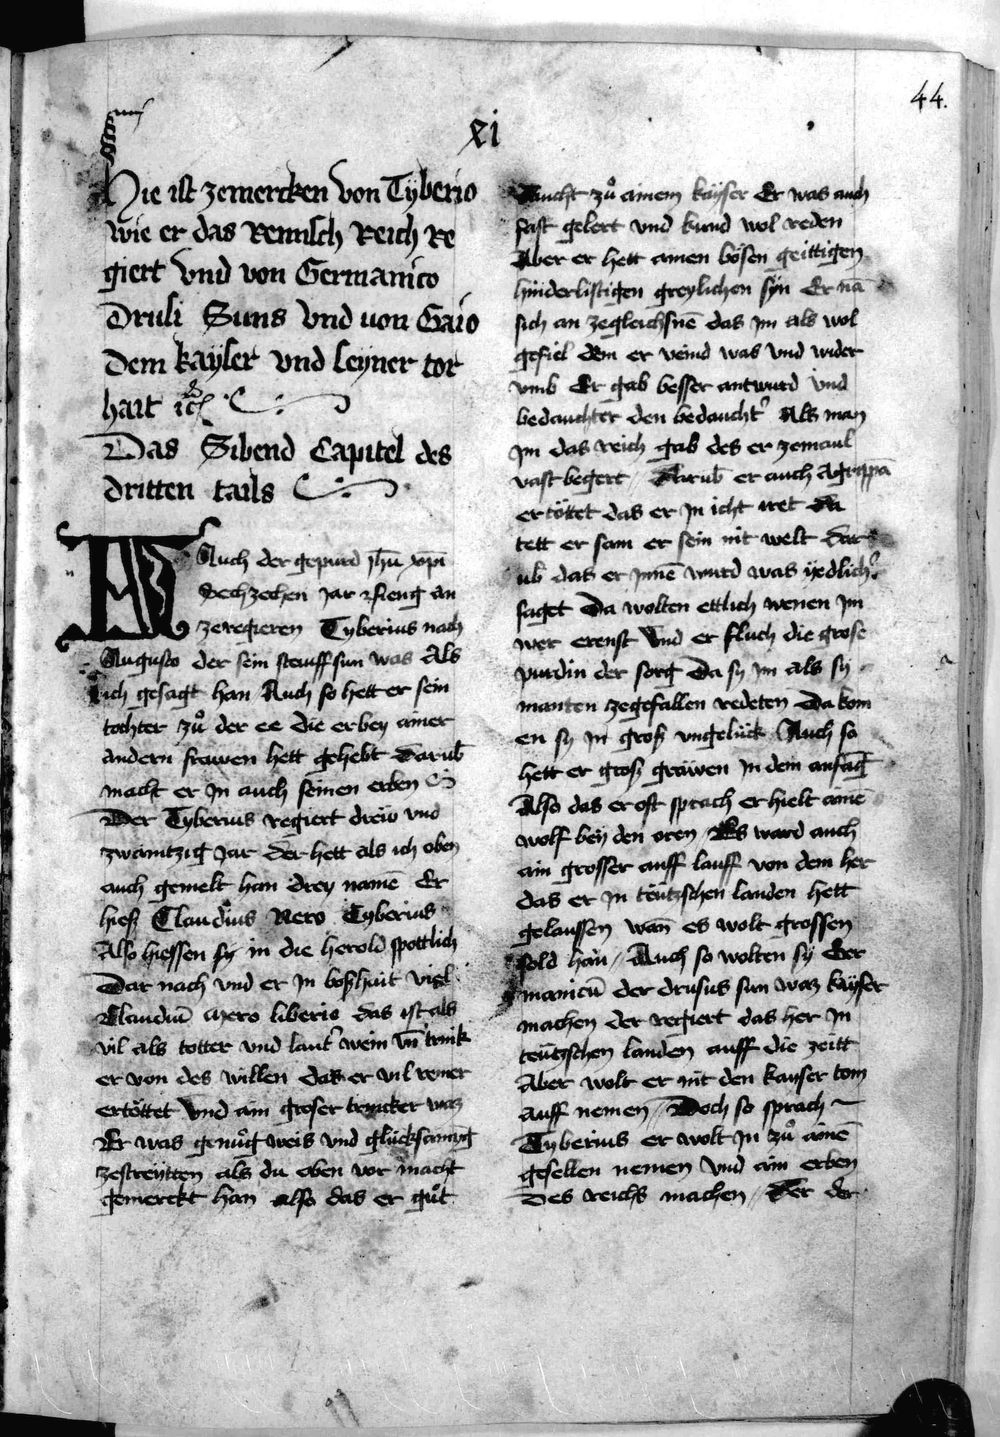 44.
xi
Hie ist zemercken von Tyberio
wie er das Remisch Reich re
giert vnd von Germanico
Drusi Suns vnd von Gaio
dem kayser vnd seyner tor
hait ꝛc̃
Das Sibend Capitel des
dritten tails
Nach der gepurd jhũ xpi
Sechzechen jar vieng an
zeregieren Tyberius nach
Augusto der sein steuffsun was Als
ich gesagt han Auch so hett er sein
tochter zů der ee die er bey ainer
andern frawen hett gehebt darub̃
macht er jn auch seinen erben
Der Tyberius regiert dreiv vnd
zwaintzig jar der hett als ich oben
auch gemelt han drey namẽ Er
hieß Claudius Nero Tyberius
Also hiessen sy in die herold spottlich
Dar nach vnd er jn boßhait viel
Claudiũ mero liberio das ist als
vil als totter vnd laut̃ wein vñ trink
er von des willen das er vil remer
ertöttet vnd ain groser trincker waz
Er was genůg weis vnd glücksamig
zestreytten als du oben vor macht
gemerckt han also das er gůt
Aucht zů ainem kayser Er was auch
fast gelert vnd kund wol reden
Aber er hett ainen bösen geittigen
hinderlistigen greylichen syn Er nã
sich an zegleichsnẽ das jm als wol
gefiel dem er veind was vnd wider
vmb Er gab besser antwurd vnd
bedauchter den bedaucht̃ Als man
jm das reich gab des er zemaul
vast begert / darub̃ er auch agrippã
ertöttet das er jn icht irret da
tett er sam er sein nit welt dar
ub̃ das er jnnẽ wurd was yedlich̃
saget Da wolten ettlich wenen jm
wer ernst vnd er fluch die grose
purdin der sorg Da sy jm als sy
manten zegefallen redeten da kom
en sy jn groß vngelück Auch so
hett er groß grawen jn dem anfãg
Also das er oft sprach er hielt ainẽ
wolf bey den oren / Es ward auch
ain grosser auff lauff von dem her
das er jn teützschen landen hett
gelaussen wañ es wolt grossen
sold han / Auch so wolten sy Ger
manicũ der drusus sun waz kayser
machen der regiert das her jn
teützschen landen auff die zeitt
Aber wolt er nit den kayser tom
auff nemen / Doch so sprach
Tyberius er wolt jn zů ainẽ
gesellen nemen vnd ain erben
des reichs machen / der der